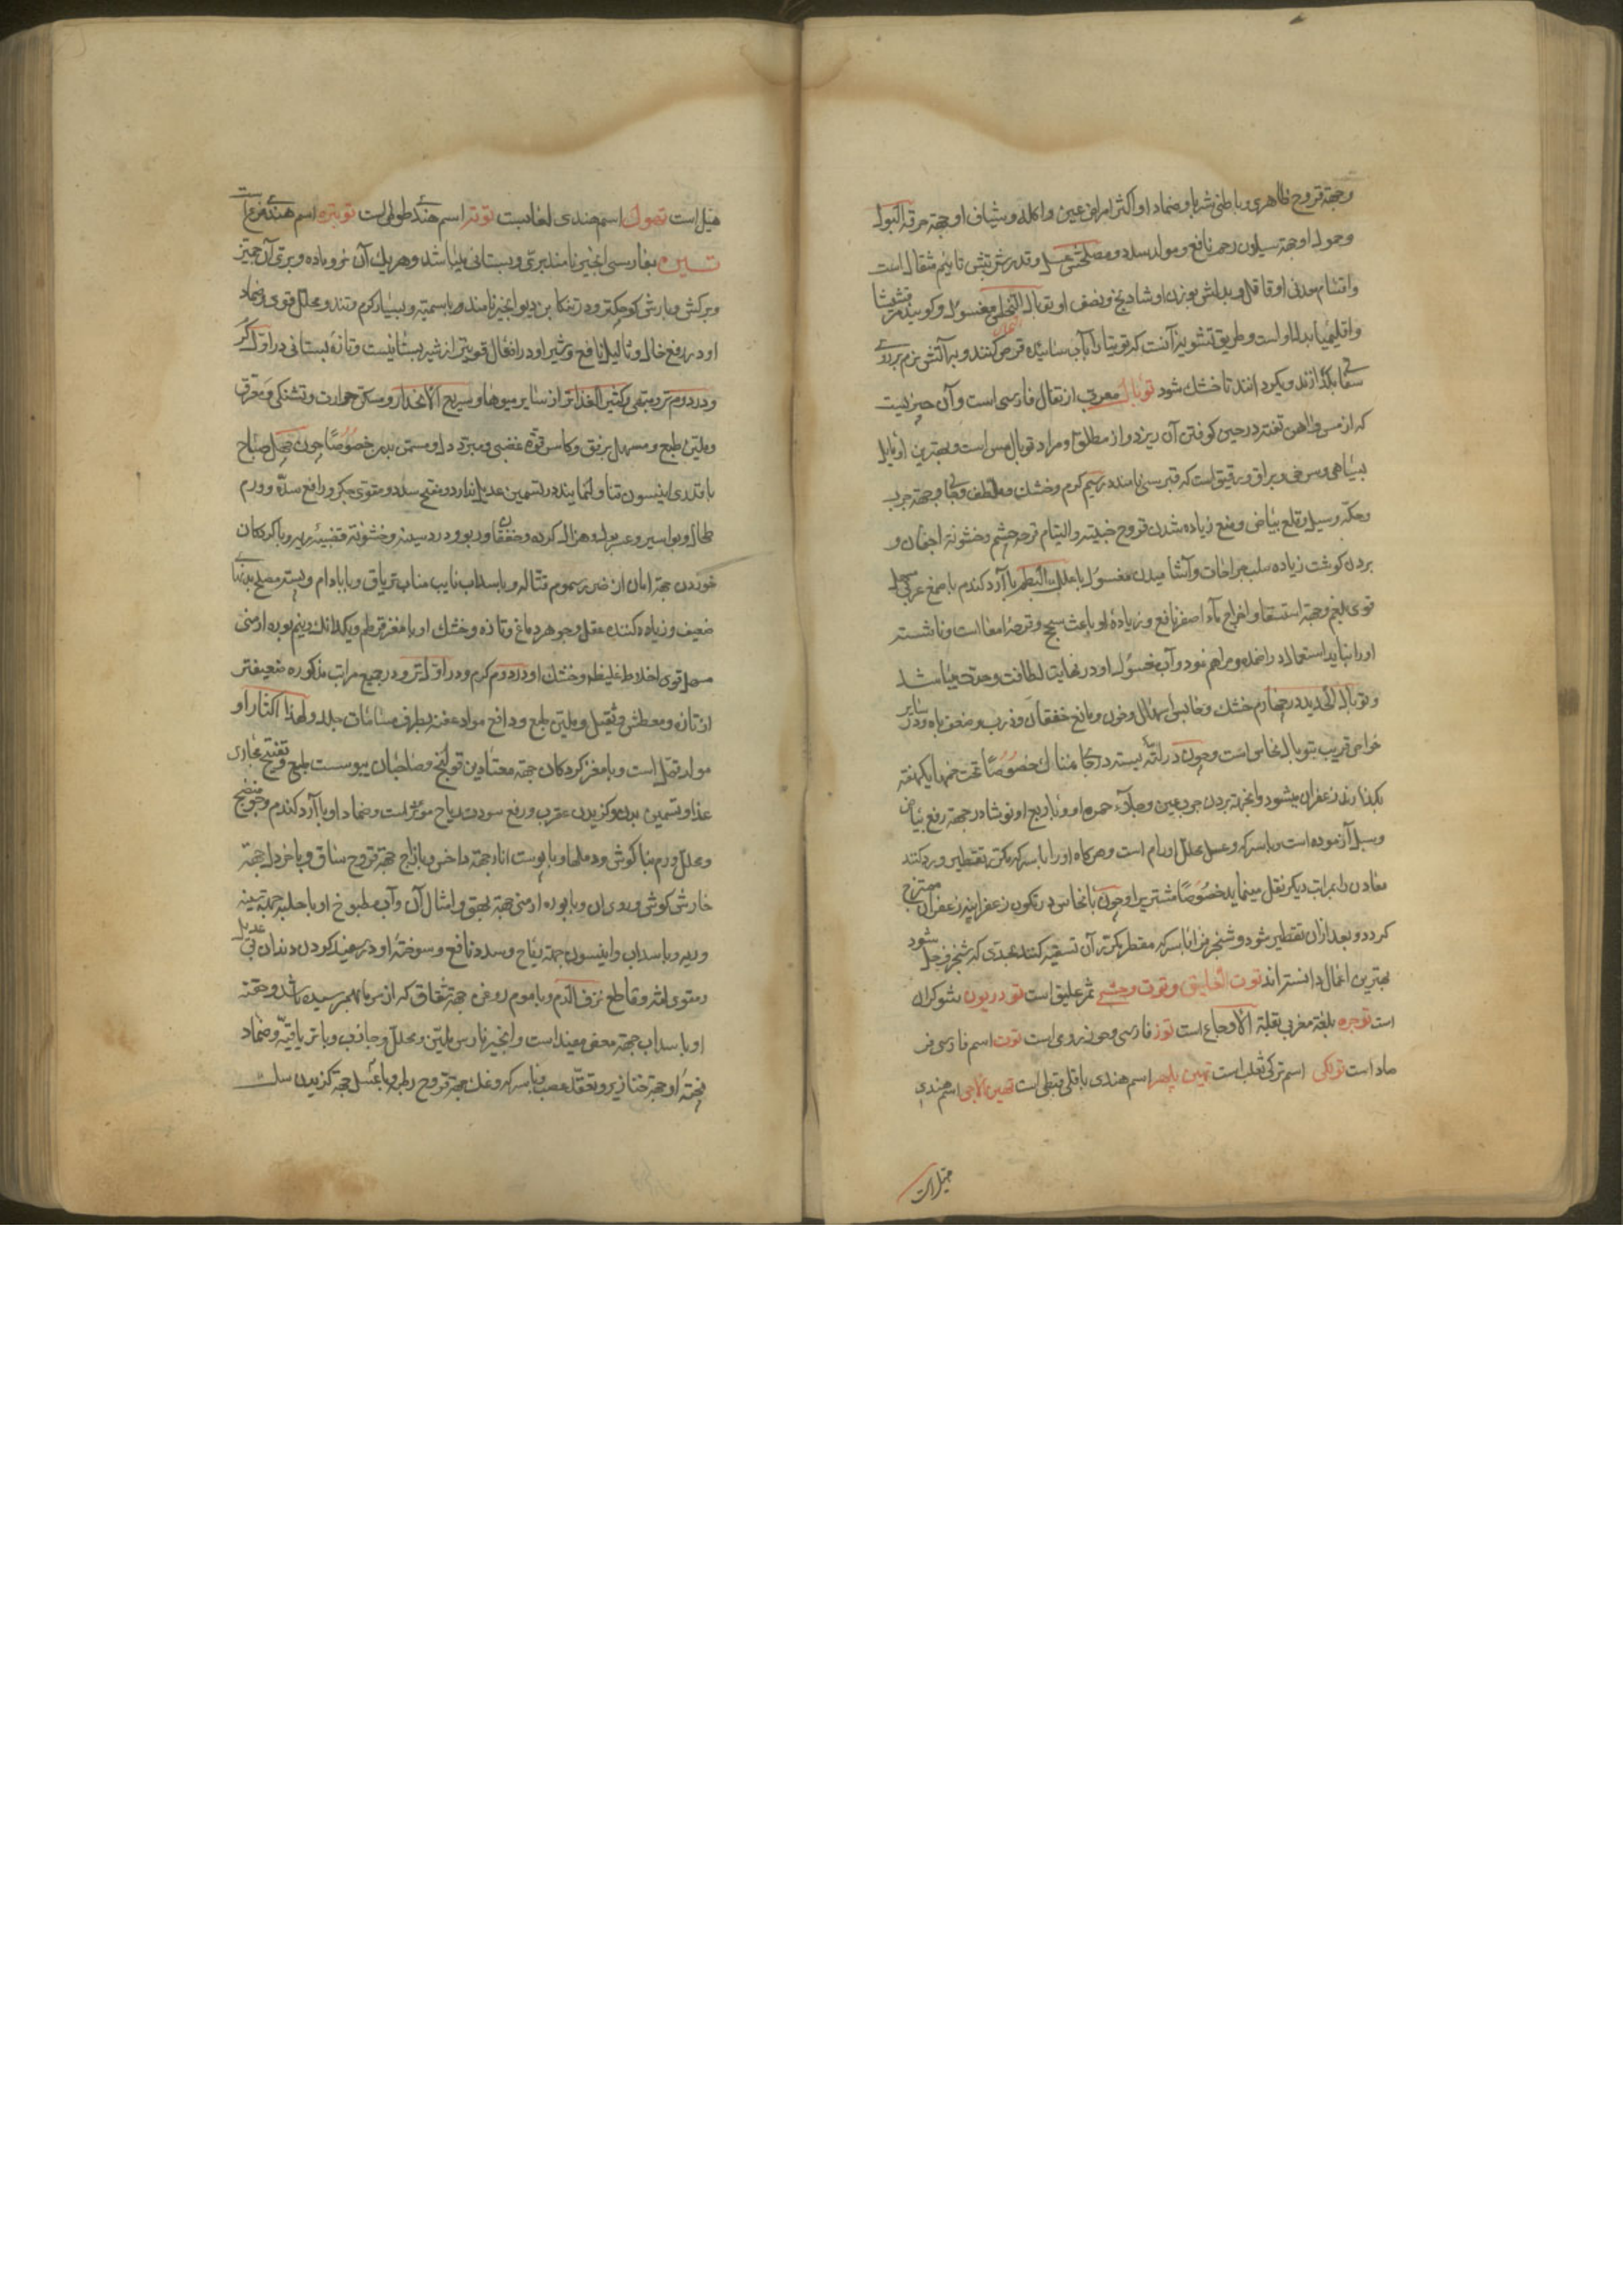 وجهة قروح ظاهری و باطنی شربا و ضمادا و اکثر امراض عین و اکله و شیاف او جهة حرقة البول
وحول او جهة سیلان رحم نافع و مولد سدد و مصلحش عسل و قدر شربتش تا نیم مثقال است
و اقسام معدنی او قاتل و بدلش بوزن او شادنج و نصف او توبال النحاس مغسول و کویند مرقشیثا
و اقلیمیا بدل او است و طریق تشویه آنست که توتیا را با آب سائیده قرص کنند و بر آتش نرم بر روی
سفال بکذارند و بکردانند تا خشک شود توبال معرب از تفال فارسی است و آن چیزیست
که از مس و آهن تفته در حین کوفتن آن ریزد و از مطلق او مراد توبال مس است و بهترین او مایل
بسیاهی و سرخی و براق و رقیق است که قبرسی نامند در سیم کرم و خشک و ملطف و جهة جرب
و حکه و سبل و قلع بیاض و منع زیاده شدن قروح خبیثه و التیام قرحه چشم و خشونة اجفان و
بردن کوشت زیاده سایر جراحات و آشامیدن مغسول با علک البطم یا آرد کندم با صمغ عربی مسهل
قوی بلغم و جهة استسقا و اخراج ماء اصفر نافع و زیادهٔ او باعث سحج و قرحهٔ امعا است و ناشسته
او را نباید استعمال در اضمده و مراهم نمود و آب غسول او در نهایت لطافت و حدت میباشد
و توبال الحدید در چهارم خشک و حابس اسهال و خون و مانع خفقان و ذرب و ضعف باه و در سایر
خواص قریب بتوبال نحاس است و چون در لته بسته در جای نمناک خصوصا تحت خمها یکهفته
بکذارند زعفران میشود و آنجهة بردن جرب عین و صلابة و حمره او و با ربع او نوشادر جهة رفع بیاض
و سبل آزموده است و با سرکه و عسل محلل اورام است و هر کاه او را با سرکه مکرر تقطیر و رد کنند
معادن را بمراتب دیکر نقل مینماید خصوصا مشتری را و چون با نحاس در تکون زعفرانیه زعفران ممتزج
کردد و بعد از آن تقطیر شود و شنجرف را با سرکه مقطر مکرر آن تسقیه کنند بحدی که شنجرف حل شود
بهترین اعمال دانسته اند توت العلیق و توت وحشی ثمر علیق است تودریون شوکران
است توجره بلغة مغربی بقلة الاوجاع است توز فارسی است توت اسم فارسی فر
صاد است تولکی اسم ترکی ثعلب است تهین پلهر اسم هندی باقلی قبطی است تهیرالاجی اسم هندی
هیل است
هیل است تهول اسم هندی لعابست توتر اسم هندی طوطی است توبتره اسم هندی است
تین بفارسی انجیر نامند بری و بستانی میباشد و هر یک آن نر و ماده و بری آن جمیز
و برکش و بارش کوچکتر و در تنکابن دیو انجیر نامند و بسیار کرم و تند و محلل قوی و ضماد
او در رفع خال و ثالیل نافع و شیر او در افعال قویتر از شیر بستانیست و تازهٔ بستانی در اول کرم
و در دوم تر و مبهی و کثیر الغذا تر از سایر میوها و سریع الانحدار و مسکن حرارت و تشنکی و معرق
و ملین طبع و مسهل برفق و کاسر قوة غضبی و مبرد دل و مسمن بدن خصوصا چون چهل صباح
با قدری انیسون تناول نمایند در تسمین عدیل ندارد و مفتح سدد و مقوی جکر و رافع سده و ورم
طحال و بواسیر و عسر بول و هزال کرده و خفقان و ربو و درد سینه و خشونة قصبه ریه و با کردکان
خوردن جهة امان از ضرر سموم قتاله و با سداب نایب مناب تریاق و با بادام و پسته مصلح بدنهای
ضعیف و زیاده کننده عقل و جوهر دماغ و تازه و خشک او با مغز قرطم و یکدانک و نیم بوره ارمنی
مسهل قوی اخلاط غلیظه و خشک او در دوم کرم و در اول تر و در جمیع مراتب مذکوره ضعیفتر
از تازه و معطش و ثقیل و ملین طبع و دافع مواد عفنه بطرف مسامات جلد و لهذا اکثار او
مولد قمل است و با مغز کردکان جهة معتادین قولنج و صاحبان یبوست طبع و تفتیح مجاری
غذا و تسمین بدن و کزیدن عقرب و رفع سودت ریاح موثر است و ضماد او با آرد کندم و جو منضج
و محلل ورم بناکوش و دملها و با پوست انار جهة داحس و با زاج جهة قروح ساق و با خردل جهة
خارش کوش و دوران و با بوره ارمنی جهة بهق و امثال آن و آب مطبوخ او با حلبه جهة سینه
و ریه و با سداب و انیسون جهة ریاح و سدد نافع و سوختهٔ او در سفید کردن دندان بی عدیل
و مقوی لثه و قاطع نزف الدم و با موم روغن جهة شقاق که از سرما بهم رسیده باشد و حقنه
او با سداب جهة مغص مفید است و انجیر نارس ملین و محلل و جاذب و با تریاقیة و ضماد
پختهٔ او جهة خنازیر و تعقد عصب و با سرکه و نمک جهة قروح رطبه و با عسل جهة کزیدن سک